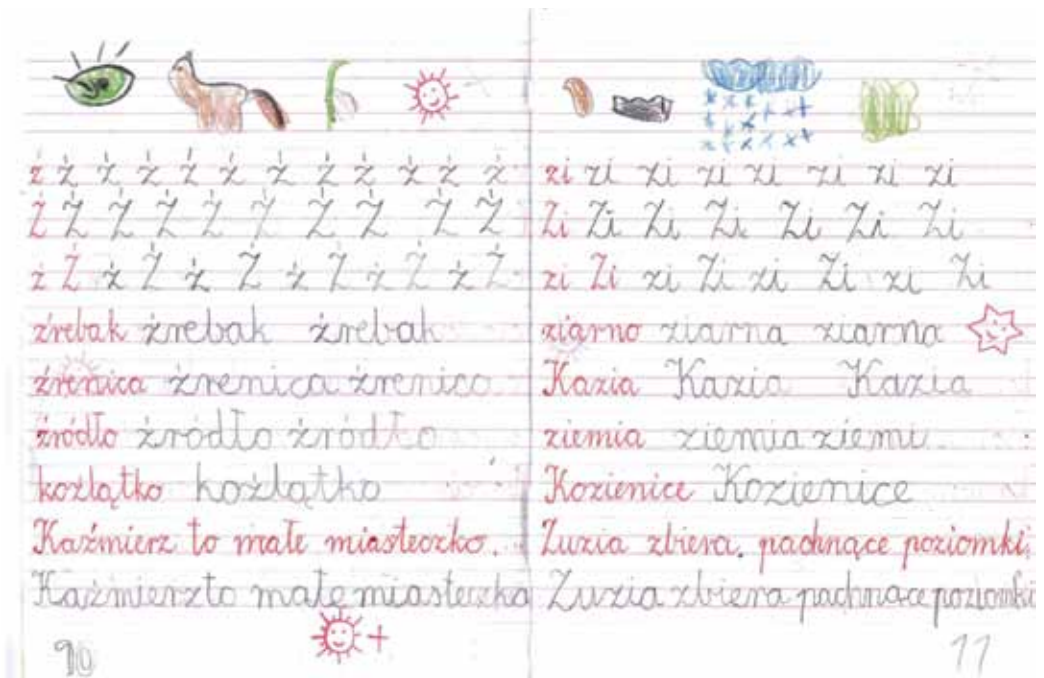 ź ź ź ź ź ź ź ź ź ź ź ź
Ź Ź Ź Ź Ź Ź Ź Ź Ź Ź Ź
ź Ź ź Ź ź Ź ź Ź ź Ź ź Ź
źrebak źrebak źrebak
źrenica źrenica źrenica
źródło źródło źródło
koźlątko koźlątko
Kaźmierz to małe miasteczko.
Kaźmierz to małe miasteczko
10
zi zi zi zi zi zi zi zi
Zi Zi Zi Zi Zi Zi Zi
zi Zi zi Zi zi Zi zi Zi
ziarno ziarna ziarna
Kazia Kazia Kazia
ziemia ziemia ziemi
Kozienice Kozienice
Zuzia zbiera. pachnące poziomki.
Zuzia zbiera pachnące poziomki
11